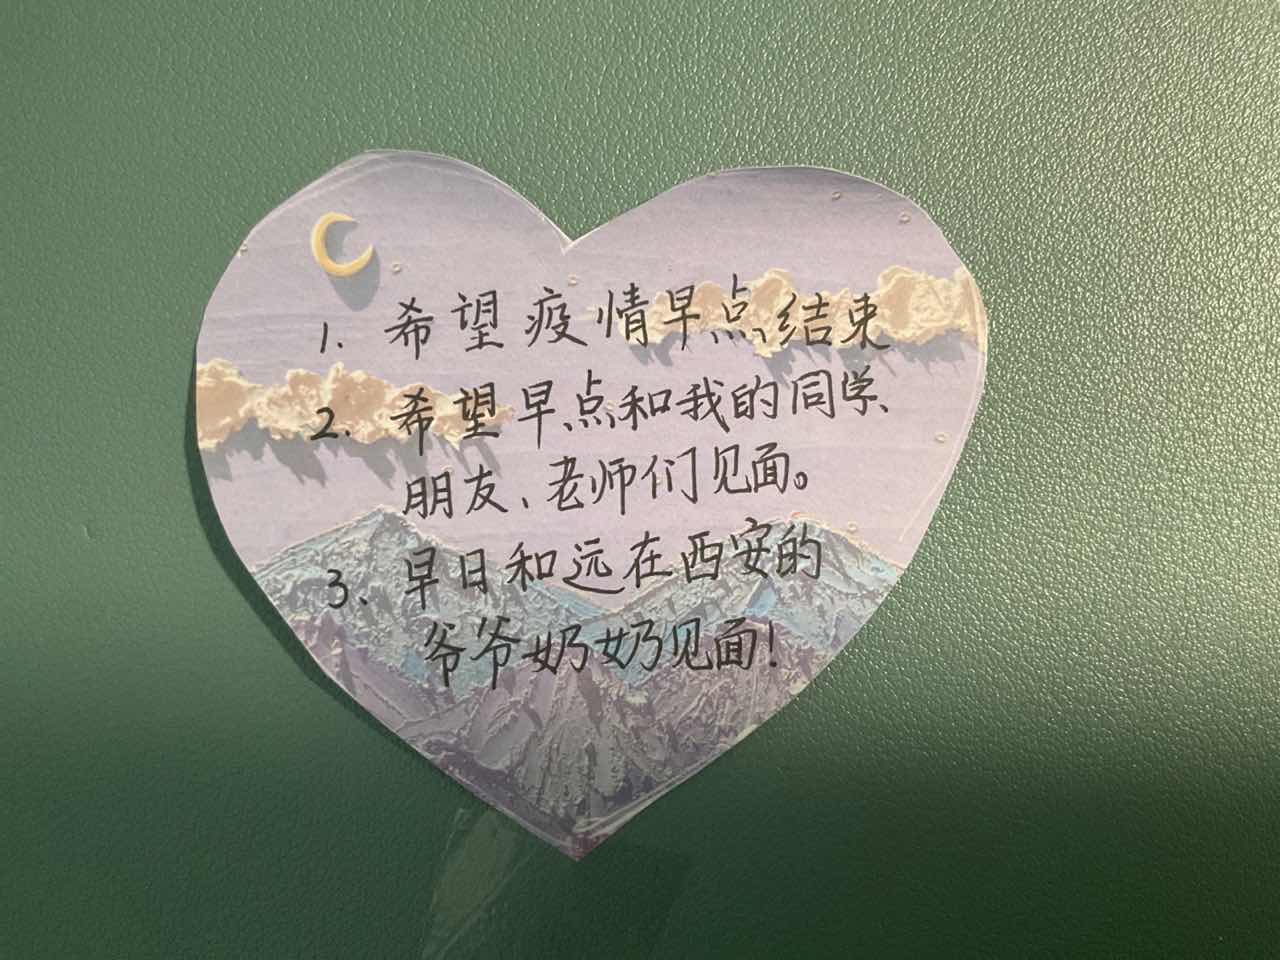 1. 希望疫情早点结束
2. 希望早点和我的同学、
朋友、老师们见面。
3、早日和远在西安的
爷爷奶奶见面！